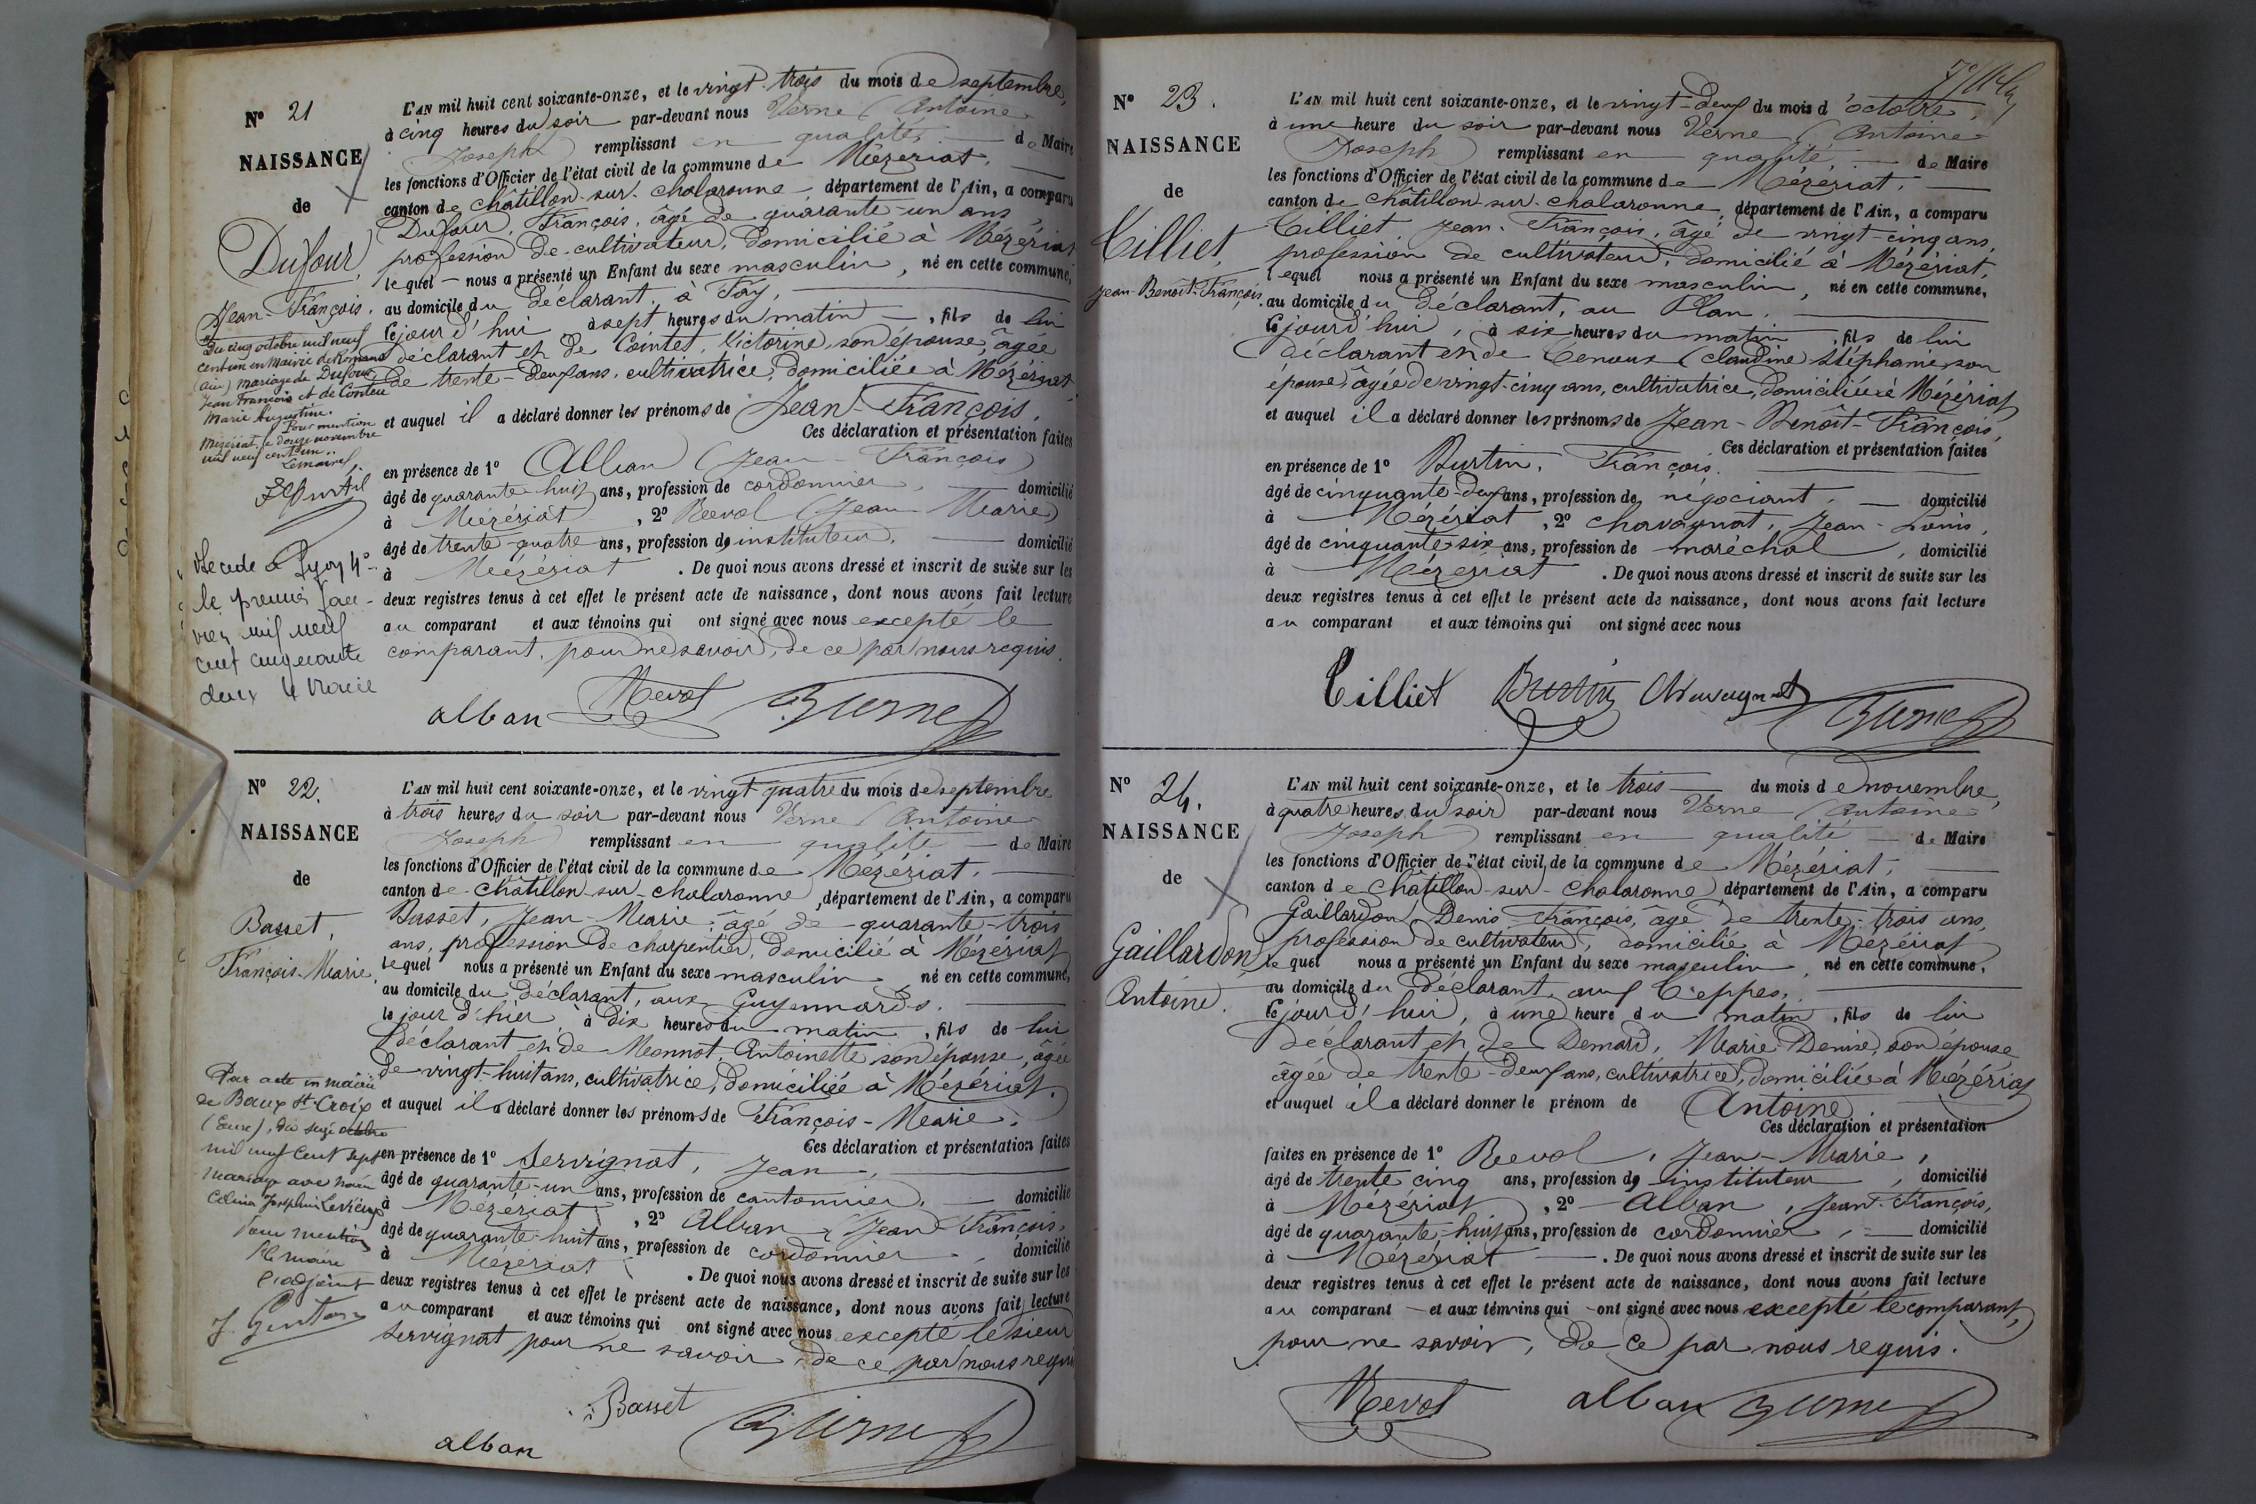 N° 21
NAISSANCE
de
Dufour
Jean-François.
Du cinq octobre mil neuf
cent un en Mairie de Romans
(Ain) Mariage de Dufour
Jean François et de
Marie Augustine.
Pour mention
Mézériat, le douze novembre
mil neuf cent un.
Le maire
Décédé à Lyon 4°
le premier jan-
vier mil neuf
cent cinquante
deux
L'AN mil huit cent soixante-onze, et le vingt-trois du mois de septembre,
à cinq heures du soir par-devant nous Verne (Antoine
Joseph) remplissant en qualité de Maire
les fonctions d'Officier de l'état civil de la commune de Mézériat,
canton de Châtillon-sur-Chalaronne département de l'Ain, a comparu
Dufour, François, âgé de quarante-un ans,
profession de cultivateur, domicilié à Mézériat
lequel nous a présenté un Enfant du sexe masculin, né en cette commune,
au domicile du déclarant, à Fay,
Cejourd'hui à sept heures du matin, fils de lui
déclarant et de Cointet, Victorine son épouse, âgée
de trente-deux ans, cultivatrice, domiciliée à Mézériat,
et auquel il a déclaré donner les prénoms de Jean-François.
Ces déclaration et présentation faites
en présence de 1° Alban (Jean-François)
âgé de quarante-huit ans, profession de cordonnier, domicilié
à Mézériat, 2° Revol (Jean-Marie)
âgé de trente-quatre ans, profession de instituteur, domicilié
à Mézériat. De quoi nous avons dressé et inscrit de suite sur les
deux registres tenus à cet effet le présent acte de naissance, dont nous avons fait lecture
au comparant et aux témoins qui ont signé avec nous excepté le
comparant, pour ne savoir, de ce par nous requis.
alban Revol Verne
N° 22.
NAISSANCE
de
Basset,
François-Marie.
Par acte en mairie
de Baux Ste Croix
(Eure), du seize octobre
mil neuf cent sept
mariage avec
Célina Joséphine
Pour mention
Le maire
L'adjoint
L'AN mil huit cent soixante-onze, et le vingt-quatre du mois de septembre
à trois heures du soir par-devant nous Verne (Antoine
Joseph) remplissant en qualité de Maire
les fonctions d'Officier de l'état civil de la commune de Mézériat,
canton de Châtillon-sur-Chalaronne, département de l'Ain, a comparu
Basset, Jean-Marie, âgé de quarante-trois
ans, profession de charpentier, domicilié à Mézériat
lequel nous a présenté un Enfant du sexe masculin, né en cette commune,
au domicile du déclarant, aux Guyennards.
le jour d'hier à dix heures du matin, fils de lui
déclarant et de Monnot, Antoinette son épouse, âgée
de vingt-huit ans, cultivatrice, domiciliée à Mézériat.
et auquel il a déclaré donner les prénoms de François-Marie.
Ces déclaration et présentation faites
en présence de 1° Servignat, Jean,
âgé de quarante-un ans, profession de cantonnier, domicilié
à Mézériat, 2° Alban (Jean-François,
âgé de quarante-huit ans, profession de cordonnier, domicilié
à Mézériat. De quoi nous avons dressé et inscrit de suite sur les
deux registres tenus à cet effet le présent acte de naissance, dont nous avons fait lecture
au comparant et aux témoins qui ont signé avec nous excepté le sieur
Servignat pour ne savoir, de ce par nous requis
Basset Verne
alban
N° 23.
NAISSANCE
de
Tilliet,
Jean-Benoît-François.
L'AN mil huit cent soixante-onze, et le vingt-deux du mois d'octobre,
à une heure du soir par-devant nous Verne (Antoine
Joseph) remplissant en qualité, de Maire
les fonctions d'Officier de l'état civil de la commune de Mézériat,
canton de Châtillon-sur-Chalaronne, département de l'Ain, a comparu
Tilliet, Jean-François, âgé de vingt-cinq ans,
profession de cultivateur, domicilié à Mézériat,
lequel nous a présenté un Enfant du sexe masculin, né en cette commune,
au domicile du déclarant, au Plan.
Cejourd'hui, à six heures du matin, fils de lui
déclarant et de (Claudine) Stéphanie son
épouse âgée de vingt-cinq ans, cultivatrice, domiciliée à Mézériat
et auquel il a déclaré donner les prénoms de Jean-Benoît-François,
Ces déclaration et présentation faites
en présence de 1° Burtin, François.
âgé de cinquante-deux ans, profession de négociant, domicilié
à Mézériat, 2° Chavagnat, Jean-Louis,
âgé de cinquante-six ans, profession de maréchal, domicilié
à Mézériat. De quoi nous avons dressé et inscrit de suite sur les
deux registres tenus à cet effet le présent acte de naissance, dont nous avons fait lecture
au comparant et aux témoins qui ont signé avec nous
Tilliet Burtin Chavagnat Verne
N° 24.
NAISSANCE
de
Gaillardon
Antoine.
L'AN mil huit cent soixante-onze, et le trois du mois de novembre,
à quatre heures du soir par-devant nous Verne (Antoine
Joseph) remplissant en qualité de Maire
les fonctions d'Officier de l'état civil de la commune de Mézériat,
canton de Châtillon-sur-Chalaronne, département de l'Ain, a comparu
Gaillardon, Denis François, âgé de trente-trois ans,
profession de cultivateur, domicilié à Mézériat
lequel nous a présenté un Enfant du sexe masculin, né en cette commune,
au domicile du déclarant, aux Teppes.
Cejourd'hui, à une heure du matin, fils de lui
déclarant et de Demard, Marie Denise, son épouse
âgée de trente-deux ans, cultivatrice, domiciliée à Mézériat
et auquel il a déclaré donner le prénom de Antoine.
Ces déclaration et présentation
faites en présence de 1° Revol, Jean-Marie,
âgé de trente cinq ans, profession de instituteur, domicilié
à Mézériat, 2° Alban, Jean-François,
âgé de quarante-huit ans, profession de cordonnier, domicilié
à Mézériat. De quoi nous avons dressé et inscrit de suite sur les
deux registres tenus à cet effet le présent acte de naissance, dont nous avons fait lecture
au comparant et aux témoins qui ont signé avec nous excepté le comparant,
pour ne savoir, de ce par nous requis.
Revol alban Verne